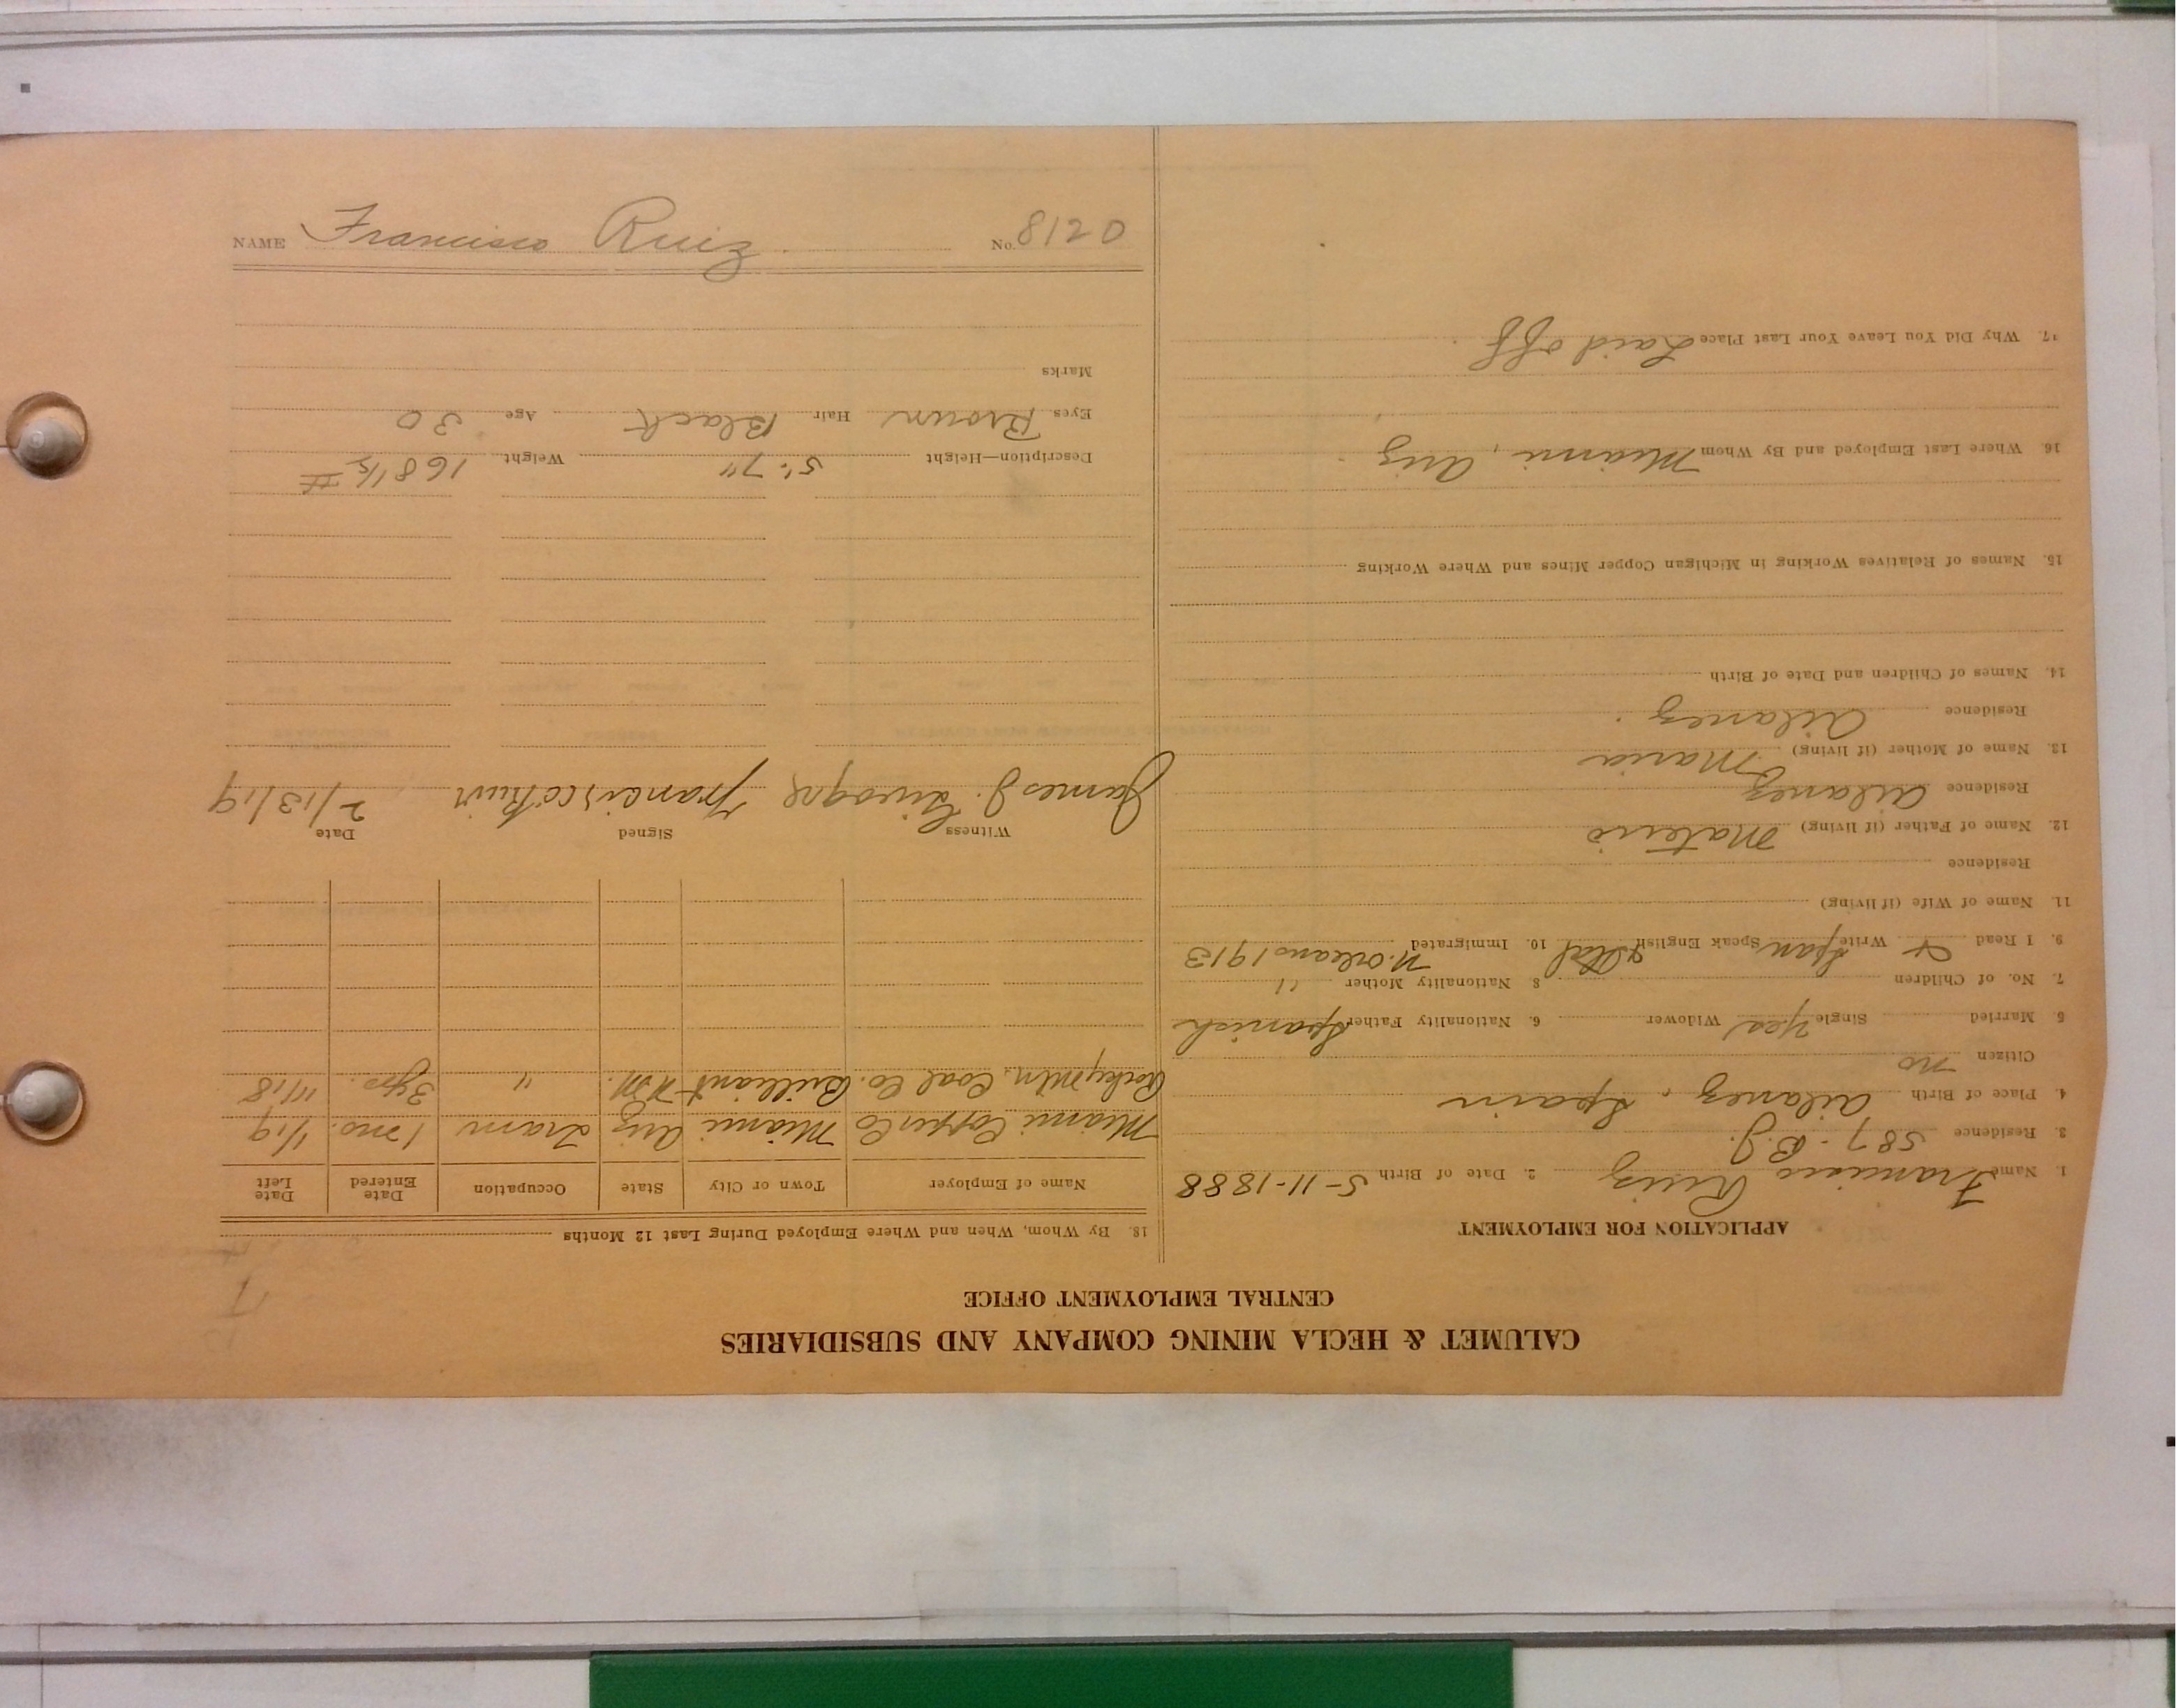 CALUMET & HECLA MINING COMPANY AND SUBSIDIARIES
CENTRAL EMPLOYMENT OFFICE
APPLICATION FOR EMPLOYMENT
1. Name Francisco Ruiz 2. Date of Birth 5-11-1888
3. Residence 587- B.J.
4. Place of Birth Ailanez, Spain
Citizen no
5. Married Single Yes Widower 6. Nationality Father Spanish
7. No. of Children 8. Nationality Mother "
9. I Read & Write Span Speak English & Ital 10. Immigrated N. Orleans 1913
11. Name of Wife (if living)
Residence
12. Name of Father (if living) Mateiro
Residence Ailanez
13. Name of Mother (if living) Maria
Residence Ailanez
14. Names of Children and Date of Birth
15. Names of Relatives Working in Michigan Copper Mines and Where Working
16. Where Last Employed and By Whom Miami, Ariz
17. Why Did You Leave Your Last Place Laid off
18. By Whom, When and Where Employed During Last 12 Months
Name of Employer Town or City State Occupation Date Entered Date Left
Miami Copper Co Miami Ariz Tram 1 mo. 1/19
Rocky Mtn. Coal Co. Brilliant N.M. " 3 yrs. 11/18
Witness Signed Date
James J. Francisco Ruiz 2/13/19
Description—Height 5'-7" Weight 168 1/2 #
Eyes Brown Hair Black Age 30
Marks
NAME Francisco Ruiz No. 8120